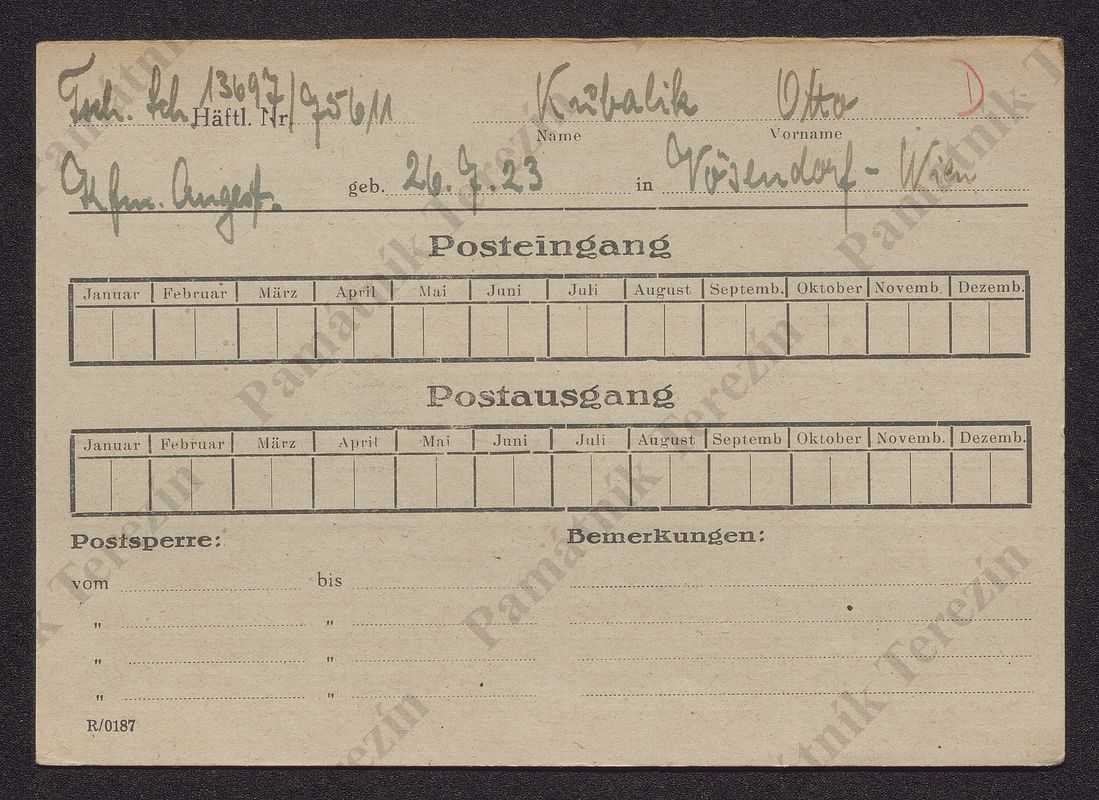 Tsch. Sch. 13697/75611 Häftl. Nr. Kubalik Otto D
Name Vorname
Kfm. Angest. geb. 26.7.23 in Vösendorf - Wien
Posteingang
Januar Februar März April Mai Juni Juli August Septemb. Oktober Novemb. Dezemb.
Postausgang
Januar Februar März April Mai Juni Juli August Septemb Oktober Novemb. Dezemb.
Postsperre: Bemerkungen:
vom bis
" "
" "
" "
R/0187
Památník Terezín